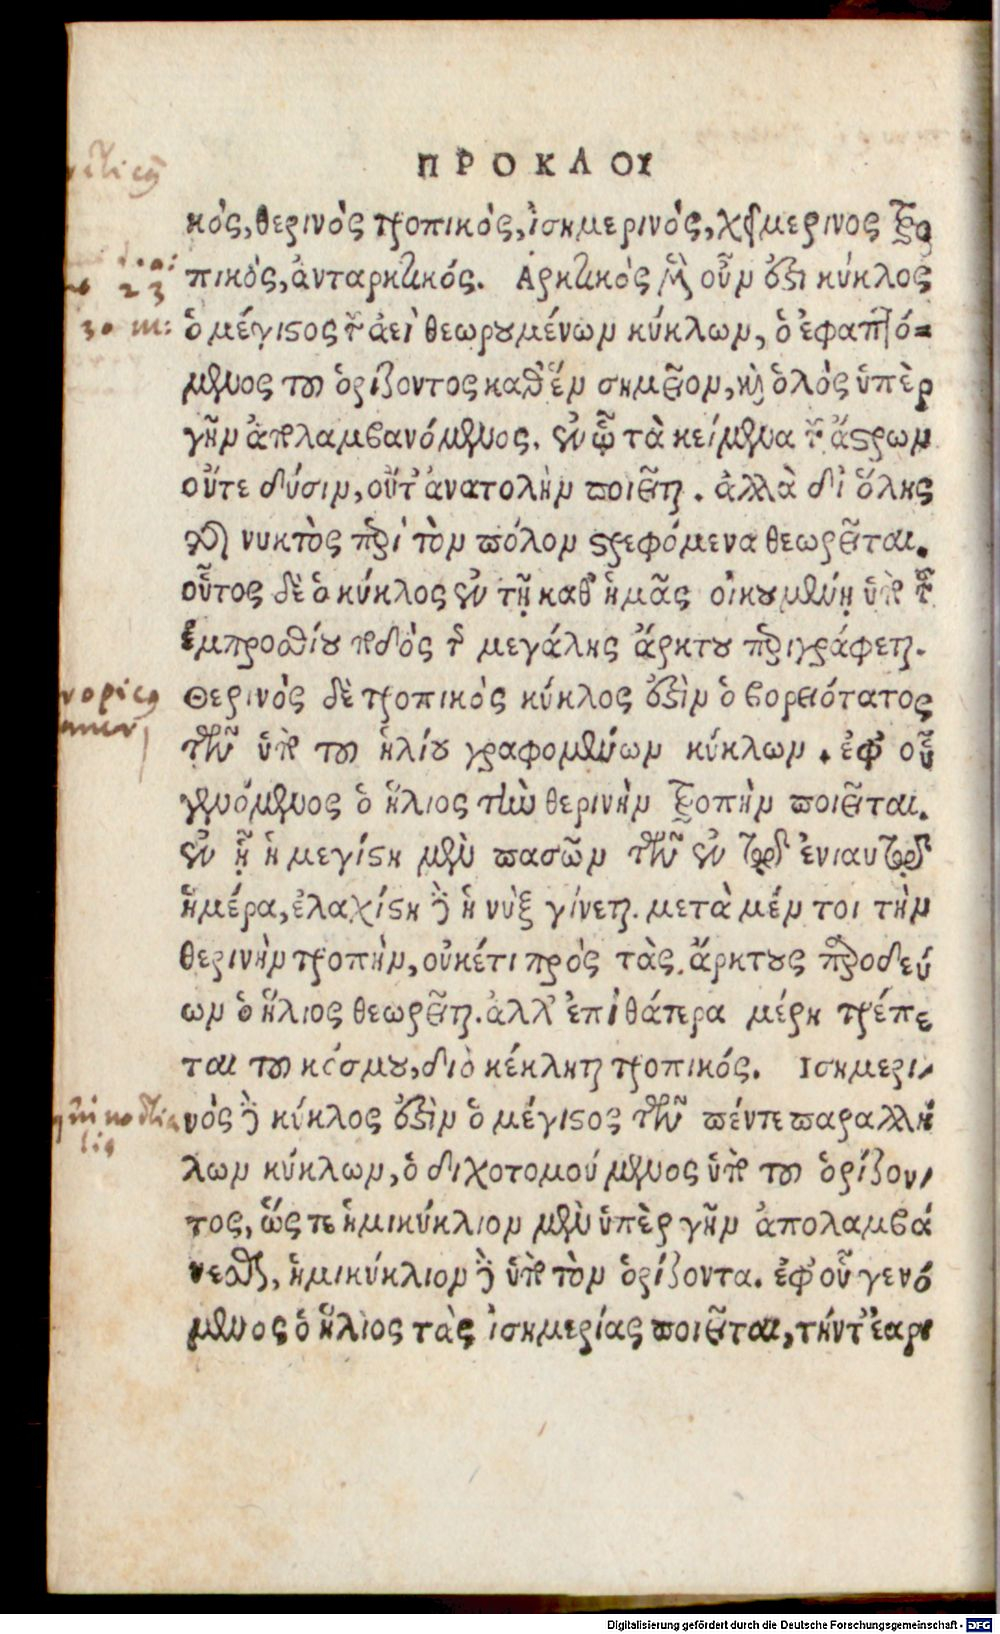 ΠΡΟΚΛΟΥ
κός, θερινὸς τροπικὸς, ἰσημερινὸς, χειμερινος τρο
πικὸς, ἀνταρκτικός. Αρκτικὸς μὲν οὖν ἐστι κύκλος
ὁ μέγιστος τῶν ἀεὶ θεωρουμένων κύκλων, ὁ ἐφαπτό=
μενος τοῦ ὁρίζοντος καθ᾽ ἓν σημεῖον, καὶ ὁλὸς ὑπὲρ
γῆν ἀπολαμβανόμενος. ἐν ᾧ τὰ κείμενα τῶν ἄστρων
οὔτε δύσιν, οὔτ᾽ ἀνατολὴν ποιεῖται. ἀλλὰ δι᾽ ὅλης
τῆς νυκτὸς περὶ τὸν πόλον στρεφόμενα θεωρεῖται.
οὗτος δὲ ὁ κύκλος ἐν τῇ καθ᾽ ἡμᾶς οἰκουμένῃ ὑπὸ τοῦ
ἐμπροσθίου ποδὸς τῆς μεγάλης ἄρκτου περιγράφεται.
Θερινὸς δὲ τροπικὸς κύκλος ἐστὶν ὁ βορειότατος
τῶν ὑπὸ τοῦ ἡλίου γραφομένων κύκλων. ἐφ᾽ οὗ
γενόμενος ὁ ἥλιος τὴν θερινὴν τροπὴν ποιεῖται.
ἐν ᾗ ἡ μεγίστη μὲν πασῶν τῶν ἐν τῷ ἐνιαυτῷ
ἡμέρα, ἐλαχίστη δὲ ἡ νὺξ γίνεται. μετὰ μέν τοι τὴν
θερινὴν τροπὴν, οὐκέτι πρὸς τὰς ἄρκτους προοδεύ
ων ὁ ἥλιος θεωρεῖται. ἀλλ᾽ ἐπὶ θάτερα μέρη τρέπε
ται τοῦ κόσμου, διὸ κέκληται τροπικός. Ισημερι-
νὸς δὲ κύκλος ἐστὶν ὁ μέγιστος τῶν πέντε παραλλή
λων κύκλων, ὁ διχοτομούμενος ὑπὸ τοῦ ὁρίζον-
τος, ὥςτε ἡμικύκλιον μὲν ὑπὲρ γῆν ἀπολαμβά
νεσθαι, ἡμικύκλιον δὲ ὑπὸ τὸν ὁρίζοντα. ἐφ᾽ οὗ γενό
μενος ὁ ἥλιος τὰς ἰσημερίας ποιεῖται, τήν τ᾽ ἐαρι
23
30 m:
Digitalisierung gefördert durch die Deutsche Forschungsgemeinschaft - DFG